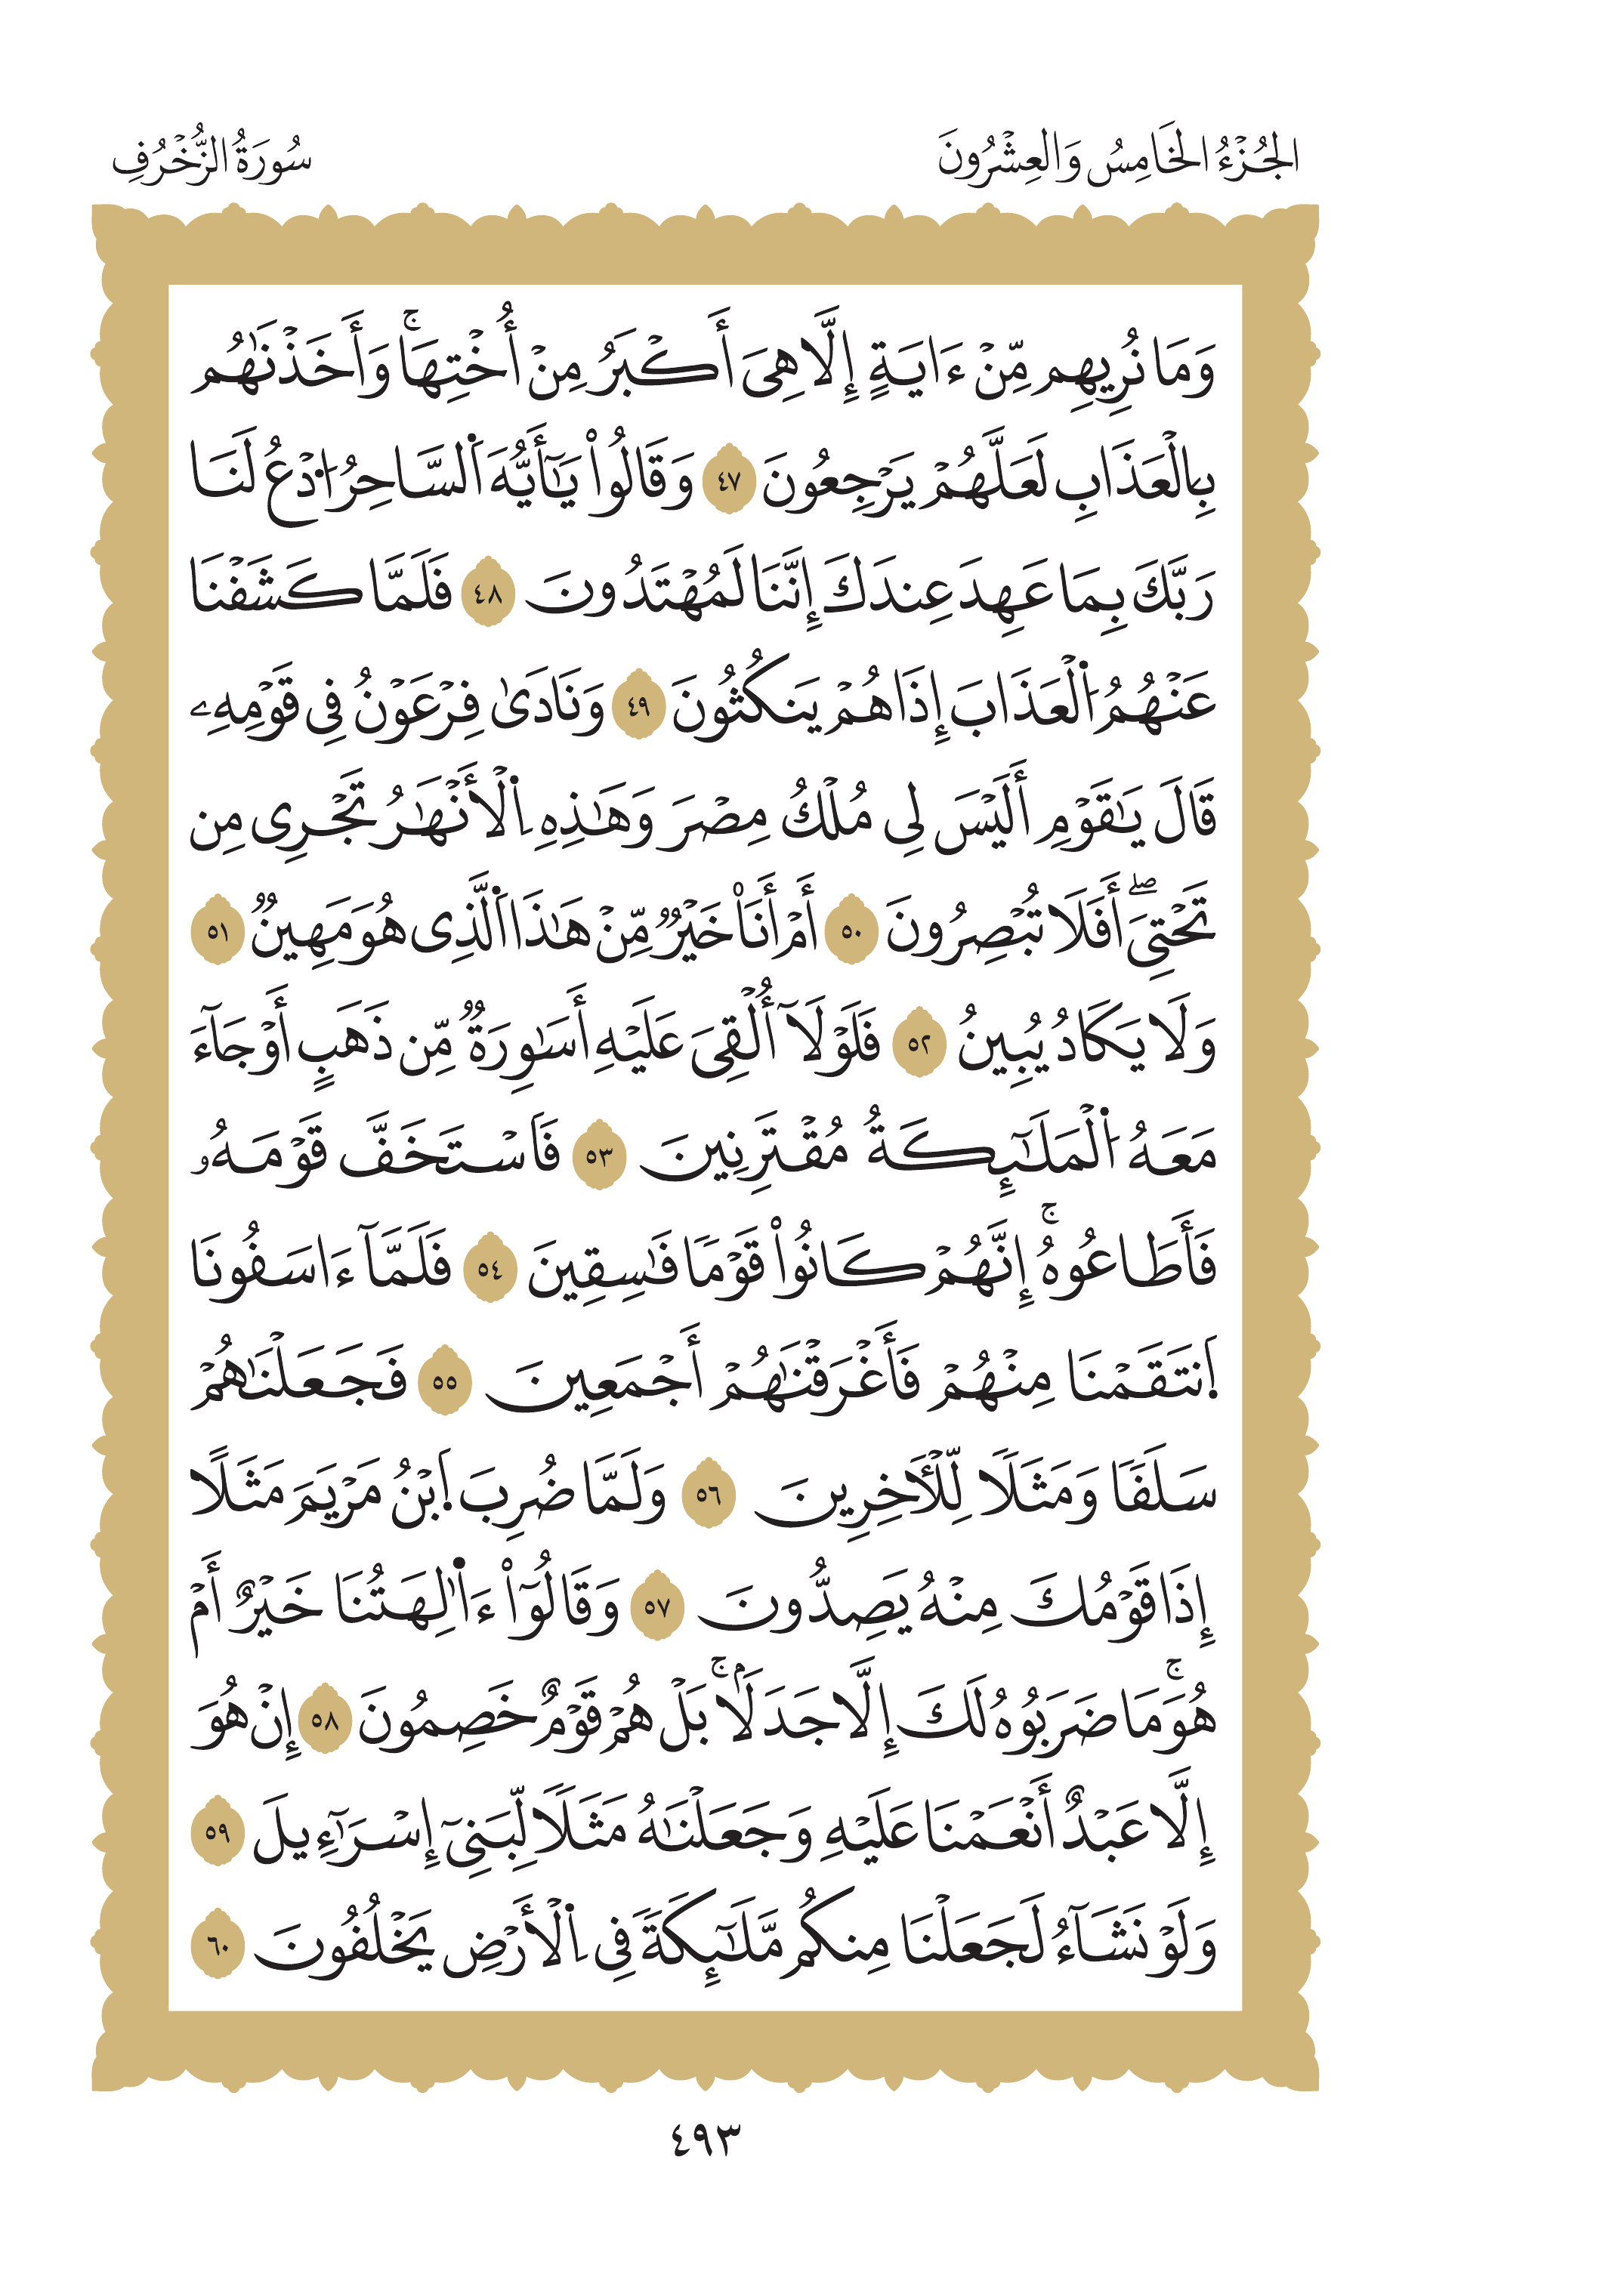 الجُزْءُ الخَامِسُ وَالعِشْرُونَ
سُورَةُ الزُّخْرُفِ
وَمَا نُرِيهِم مِّنْ ءَايَةٍ إِلَّا هِىَ أَكْبَرُ مِنْ أُخْتِهَاۚ وَأَخَذْنَٰهُم
بِالْعَذَابِ لَعَلَّهُمْ يَرْجِعُونَ ٤٧ وَقَالُوا۟ يَٰٓأَيُّهَ اَ۬لسَّاحِرُ اُ۟دْعُ لَنَا
رَبَّكَ بِمَا عَهِدَ عِندَكَ إِنَّنَا لَمُهْتَدُونَ ٤٨ فَلَمَّا كَشَفْنَا
عَنْهُمُ اُ۬لْعَذَابَ إِذَا هُمْ يَنكُثُونَ ٤٩ وَنَادَىٰ فِرْعَوْنُ فِى قَوْمِهِۦ
قَالَ يَٰقَوْمِ أَلَيْسَ لِى مُلْكُ مِصْرَ وَهَٰذِهِ اِ۬لْأَنْهَٰرُ تَجْرِى مِن
تَحْتِىَۖ أَفَلَا تُبْصِرُونَ ٥٠ أَمْ أَنَا۠ خَيْرٌ مِّنْ هَٰذَا اَ۬لَّذِى هُوَ مَهِينٌ ٥١
وَلَا يَكَادُ يُبِينُ ٥٢ فَلَوْلَآ أُلْقِىَ عَلَيْهِ أَسَٰوِرَةٌ مِّن ذَهَبٍ أَوْ جَآءَ
مَعَهُ اُ۬لْمَلَٰٓئِكَةُ مُقْتَرِنِينَ ٥٣ فَاسْتَخَفَّ قَوْمَهُۥ
فَأَطَاعُوهُۚ إِنَّهُمْ كَانُوا۟ قَوْمًا فَٰسِقِينَ ٥٤ فَلَمَّآ ءَاسَفُونَا
اَ۪نتَقَمْنَا مِنْهُمْ فَأَغْرَقْنَٰهُمْ أَجْمَعِينَ ٥٥ فَجَعَلْنَٰهُمْ
سَلَفًا وَمَثَلًا لِّلْأَٓخِرِينَ ٥٦ وَلَمَّا ضُرِبَ اَ۪بْنُ مَرْيَمَ مَثَلًا
إِذَا قَوْمُكَ مِنْهُ يَصِدُّونَ ٥٧ وَقَالُوٓا۟ ءَاٰ۬لِهَتُنَا خَيْرٌ أَمْ
هُوَۚ مَا ضَرَبُوهُ لَكَ إِلَّا جَدَلَۢاۚ بَلْ هُمْ قَوْمٌ خَصِمُونَ ٥٨ إِنْ هُوَ
إِلَّا عَبْدٌ أَنْعَمْنَا عَلَيْهِ وَجَعَلْنَٰهُ مَثَلًا لِّبَنِىٓ إِسْرَٰٓءِيلَ ٥٩
وَلَوْ نَشَآءُ لَجَعَلْنَا مِنكُم مَّلَٰٓئِكَةً فِى اِ۬لْأَرْضِ يَخْلُفُونَ ٦٠
٤٩٣